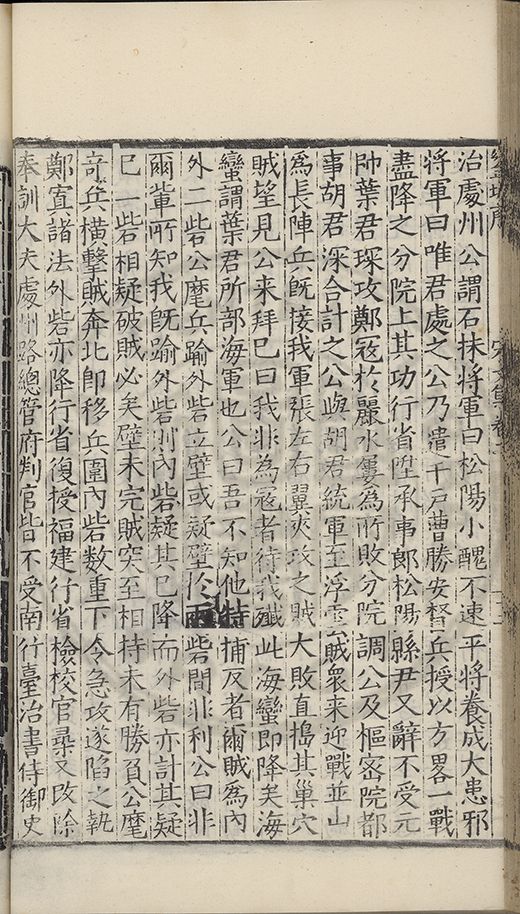 治處州公謂石抹將軍曰松陽小醜不速平將養成大患邪
將軍曰唯君處之公乃遣千戸曹勝安督兵授以方畧二戰
盡降之分院上其功行省陞承事郎松陽縣尹又辭不受元
帥葉君琛攻鄭冦於麗水屢為所敗分院調公及樞宻院都
事胡君深合計之公與胡君統軍至浮雲賊衆来迎戰並山
爲長陣兵旣接我軍張左右翼夾攻之賊大敗直搗其巢穴
賊望見公来拜已曰我非為冦者待我殱此海蠻即降矣海
蠻謂葉君所部海軍也公曰吾不知他特捕反者爾賊為內
外二砦公麾兵踰外砦立壁或疑壁扵兩砦間非利公曰非
爾軰所知我旣踰外砦則內砦疑其已降而外砦亦計其疑
已一砦相疑破賊必矣壁未完賊突至相持未有勝負公麾
竒兵橫擊賊奔北卽移兵圍內砦数重下令急攻遂陷之執
鄭寘諸法外砦亦降行省復授福建行省檢校官尋又改除
奉訓大夫處州路總管府判官皆不受南行臺治書侍御史